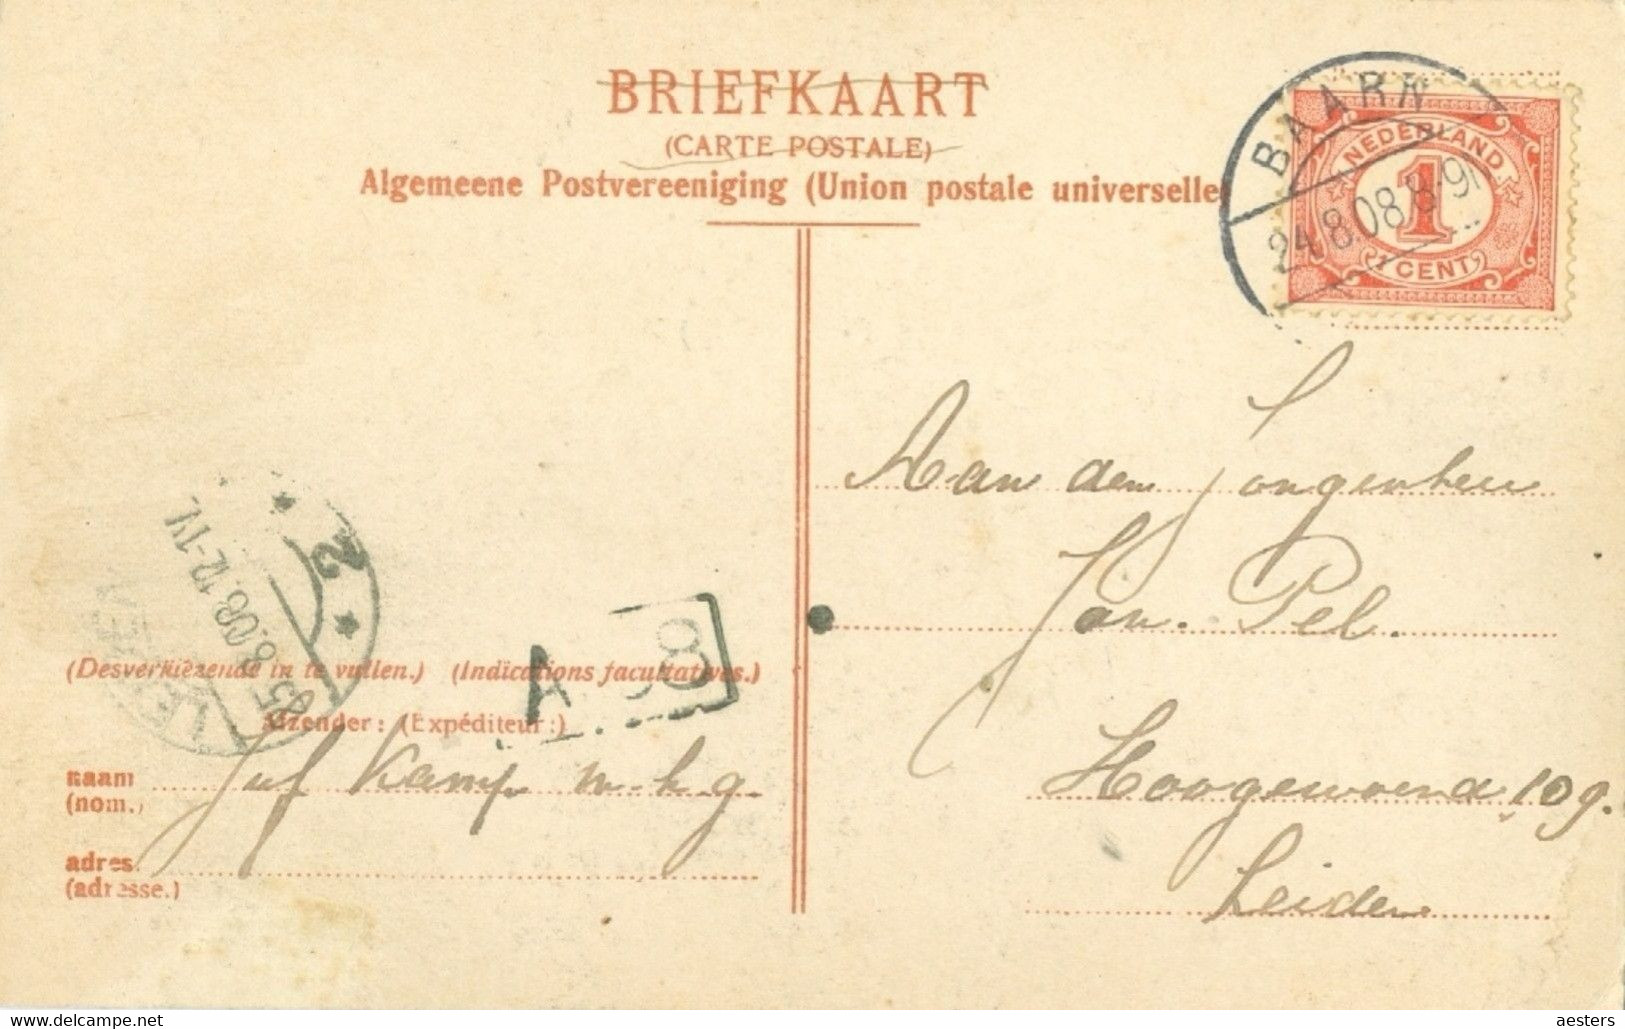 BRIEFKAART
(CARTE POSTALE)
Algemeene Postvereeniging (Union postale universelle
BAARN
24.8.08.8-9
NEDERLAND
1
1 CENT
Aan den Jongenheer
Jan. Pel.
Hoogewoerd 109.
Leiden.
2
5.8.08.12-1V.
A 8
(Desverkiezende in te vullen.) (Indications facultatives.)
Afzender: (Expéditeur:)
naam
(nom.)
Juf Kamp m.h.g.
adres.
(adresse.)
aesters